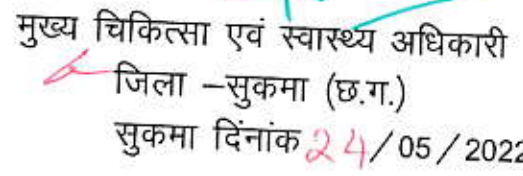 मुख्य चिकित्सा एवं स्वास्थ्य अधिकारी
जिला –सुकमा (छ.ग.)
सुकमा दिंनांक 24/05/2022